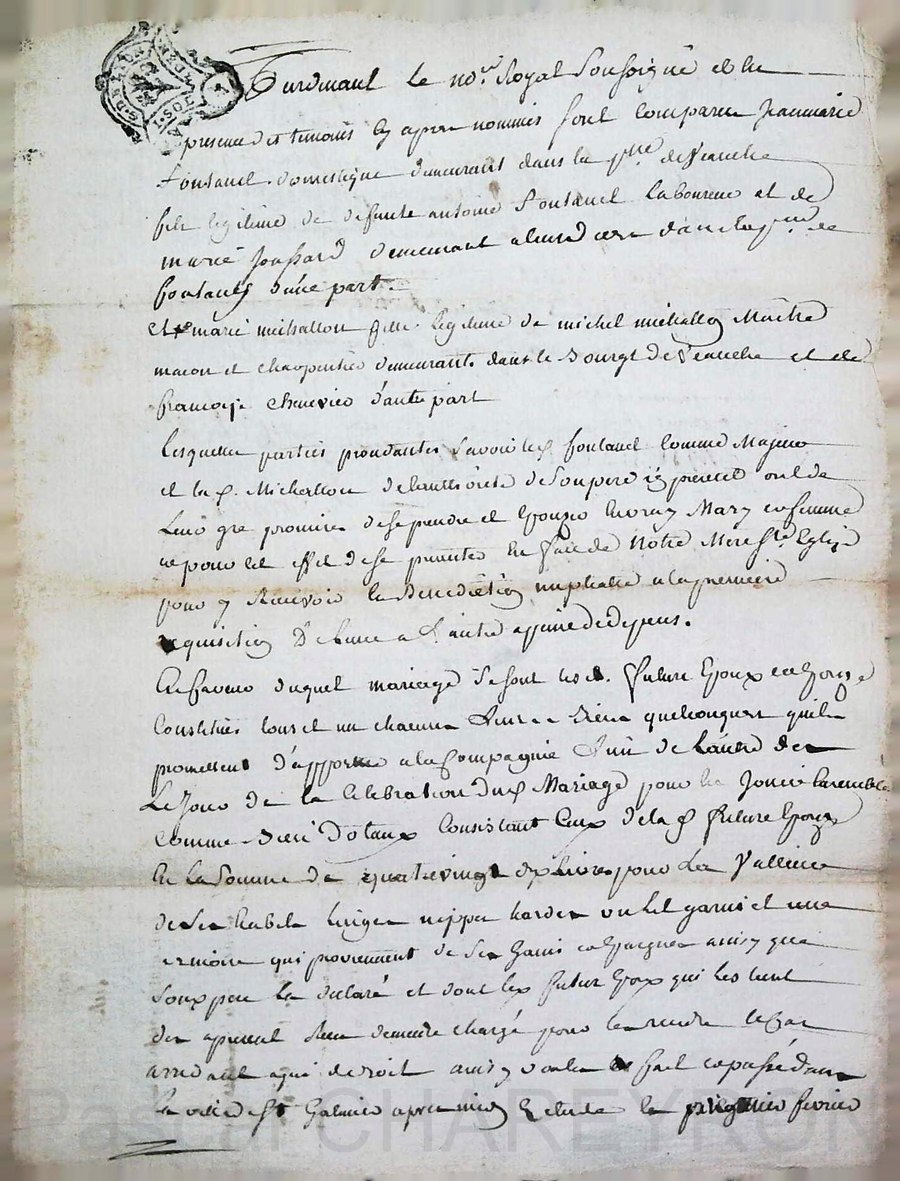 Pardevant le no.re Royal Soussigné et En
presence des temoins cy apres nommés sont comparu Jeanmarie
fontanel domestique demeurant dans la p.sse de Veauche
fils legitime de defunte antoine fontanel laboureur et de
marie Joussard demeurant dans la p.sse de
d'une part.
Et marie michallon fille legitime de michel michallon Maître
macon et charpentier demeurants dans le Bourgt de Veauche et de
francoise chenevier d'autre part
Lesquelles parties procedantes Savoir led. fontanel comme Majeur
et la d. Michallon de lauthorité de Son pere icy present ont de
Leur gré promires de se prendre et Epouzer En vray Mary en femme
et pour cet effet de se presenter En face de Notre Mere S.te Eglize
pour y Recevoir la Benediction nuptialle a la premiere
requisition De Lune a L'autre a peine de depens.
En faveur duquel mariage Se sont les d. futurs Epoux et Epouze
Constitués tous et un chacuns Leurs Biens quelconques quils
promettent d'apporter a la Compagnie L'un de L'autre des
Le Jour de la Celebration du d. Mariage pour les Jouir Ensemble
Comme Biens Dotaux Consistant Ceux de la d. future Epouze
En La Somme de quatrevingt dix Livres pour La Valleur
de Ses habits linges nippes hardes un lit garni et une
armoire qui proviennent de Ses Gains et Epargnes ainsy que
Son pere la declaré et dont led. futur Epoux qui les tient
des apresent Sera demeure chargé pour les rendre le Cas
arrivant a qui de droit ainsy voulu fait et passé dans
la ville de St Galmier apres midy Et Etude le fevrier